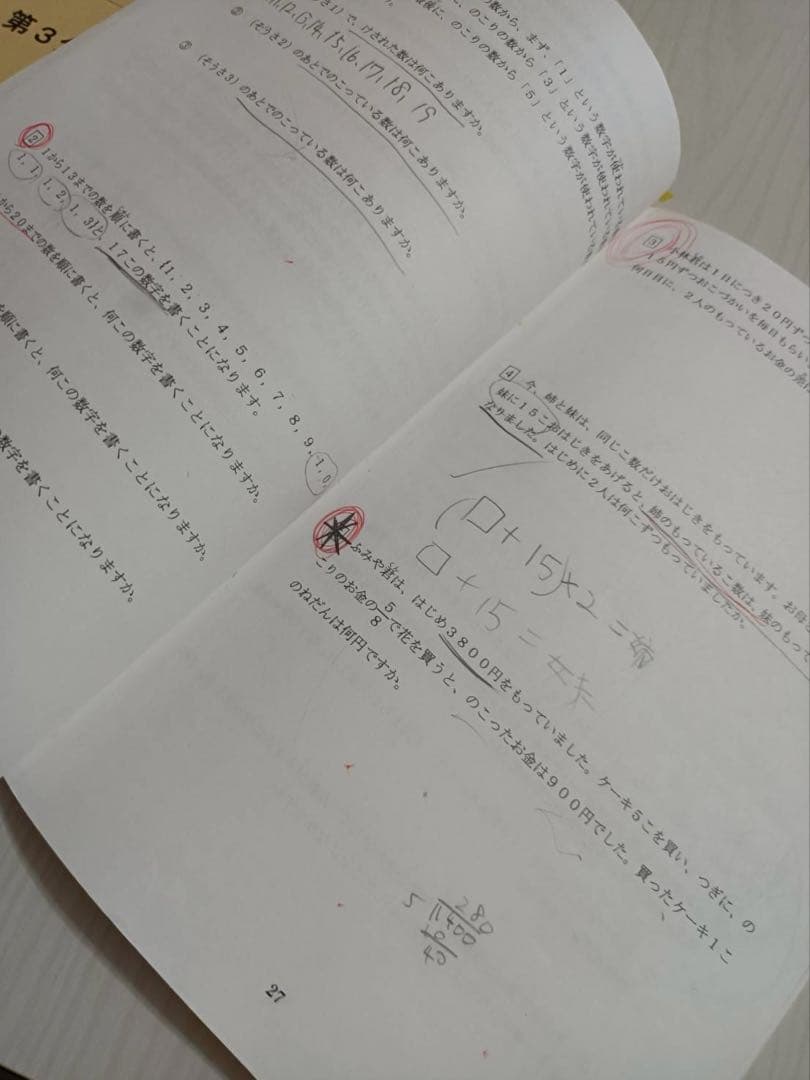 第3
数から、まず、「1」という数字が使われてい
のこりの数から「3」という数字が使われている
のこりの数から「5」という数字が使われている
で、けされた数は何こありますか。
12,13,14,15,16,17,18,19
② (そうさ2)のあとでのこっている数は何こありますか。
③ (そうさ3)のあとでのこっている数は何こありますか。
2 1から13までの数を順に書くと、(1, 2, 3, 4, 5, 6, 7, 8, 9, 1,0,
1,1, 1,2, 1,3)と、17この数字を書くことになります。
から20までの数を順に書くと、何この数字を書くことになりますか。
順に書くと、何この数字を書くことになりますか。
数字を書くことになりますか。
3 小林君は1日につき20円ずつ
15円ずつおこづかいを毎日もらい
何日目に、2人のもっているお金の
4 今、姉と妹は、同じこ数だけおはじきをもっています。
妹に15こおはじきをあげると、姉のもっているこ数は、妹のもって
なりました。はじめに2人は何こずつもっていましたか。
(□+15)×2=姉
□+15=妹
ふみや君は、はじめ3800円をもっていました。ケーキ5こを買い、つぎに、の
こりのお金の5/8で花を買うと、のこったお金は900円でした。買ったケーキ1こ
のねだんは何円ですか。
280
5 1400
10
40
27